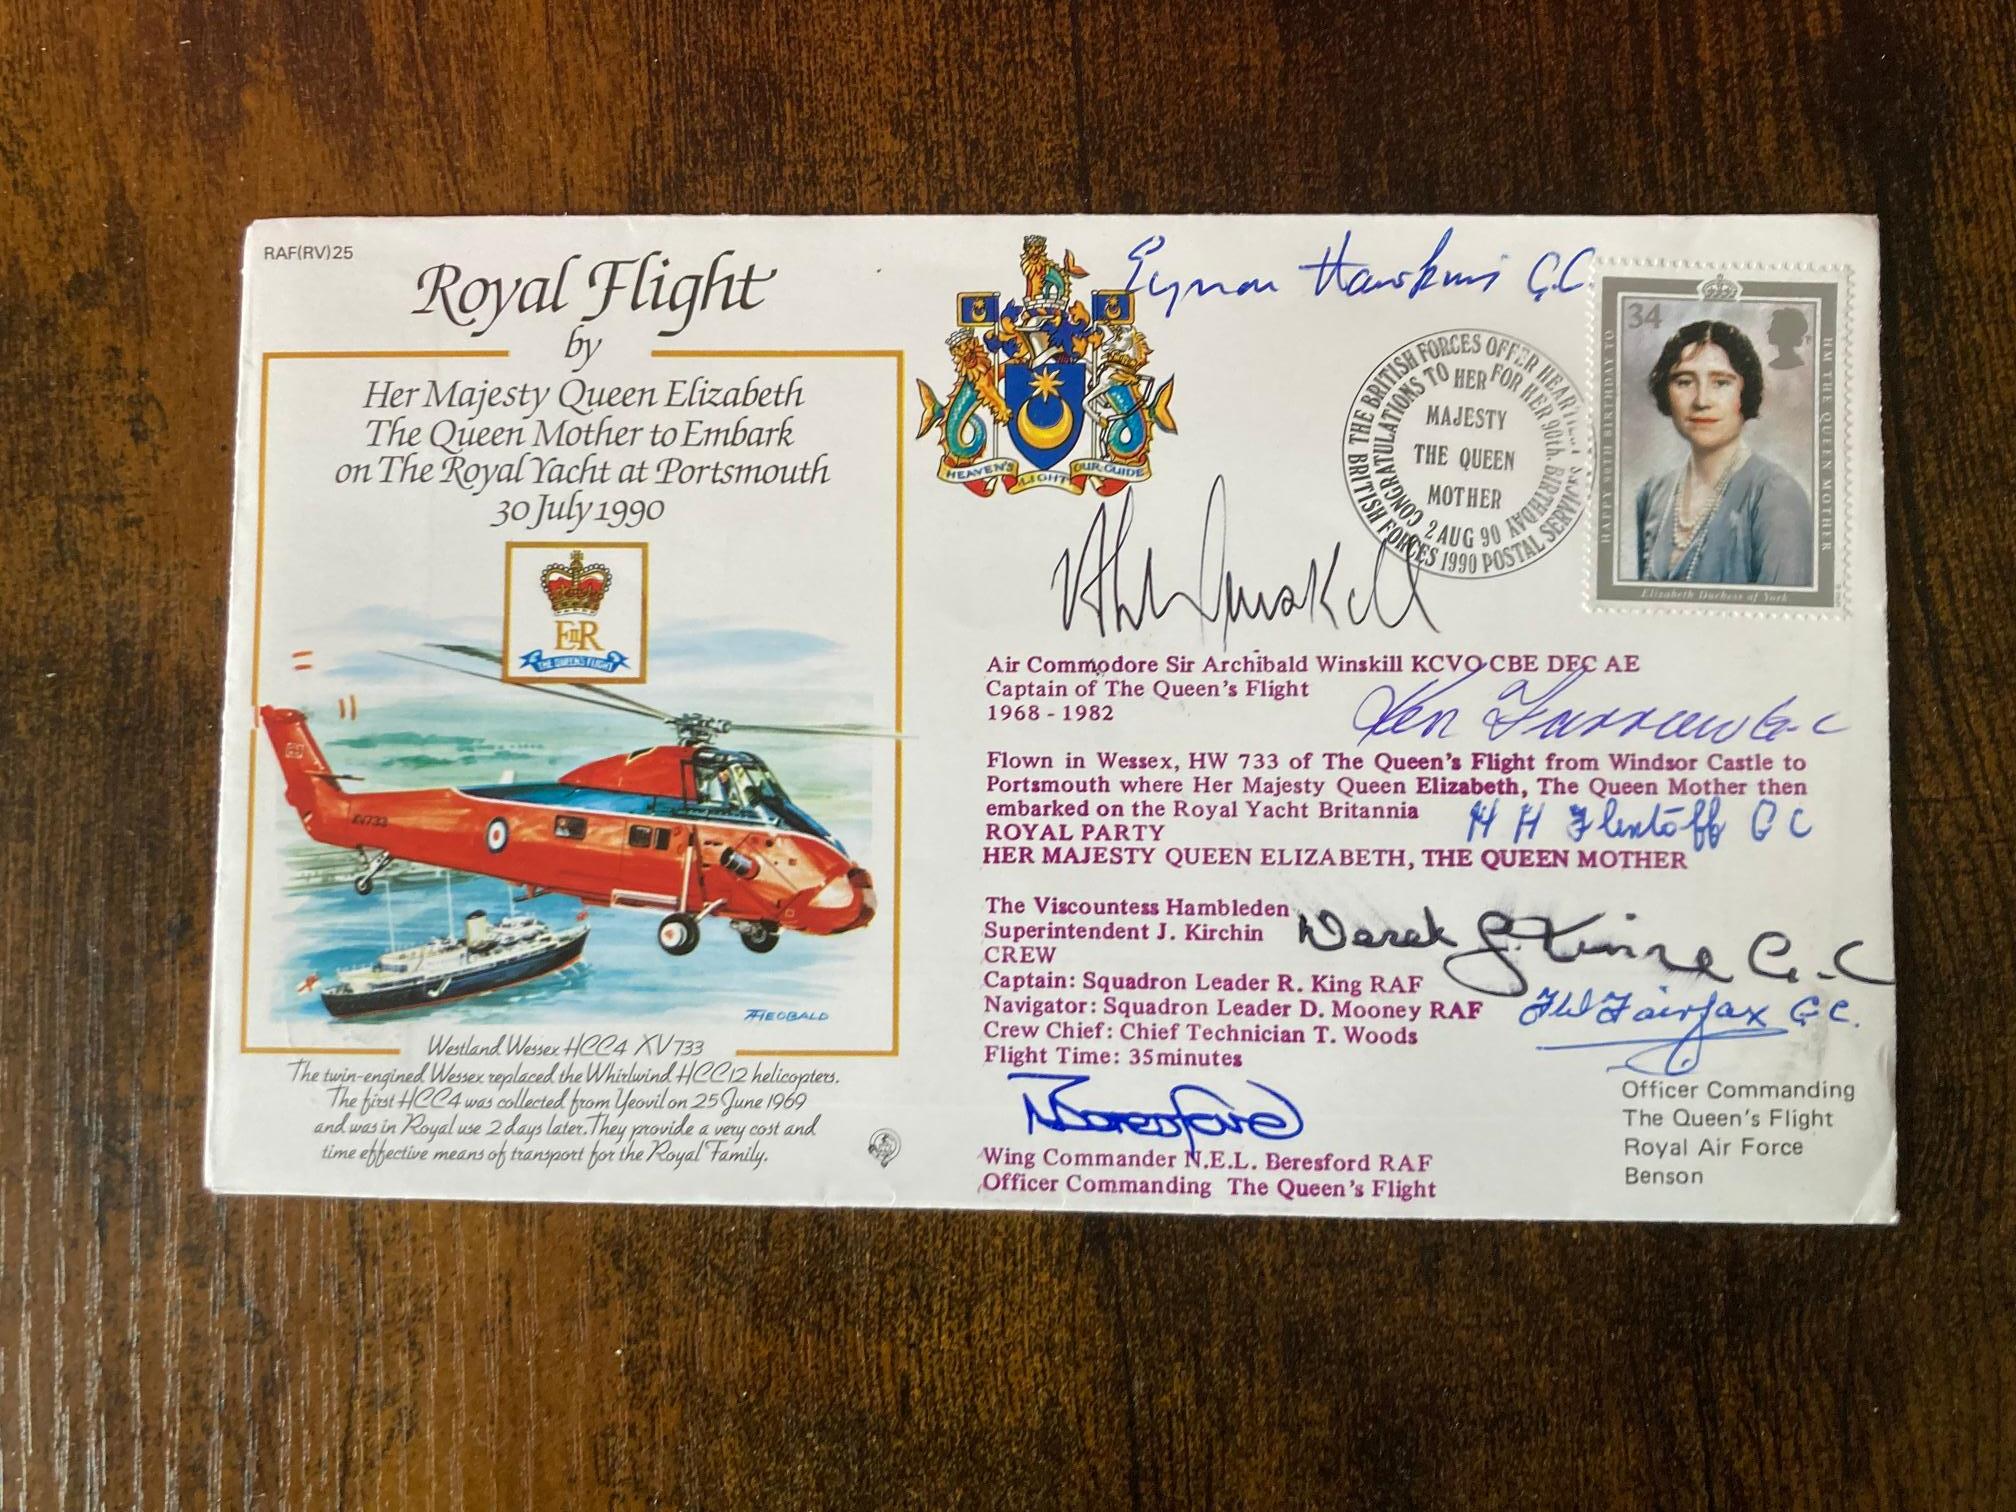 RAF(RV)25
Royal Flight
by
Her Majesty Queen Elizabeth
The Queen Mother to Embark
on The Royal Yacht at Portsmouth
30 July 1990
EIIR
THE QUEEN'S FLIGHT
XV733
THEOBALD
Westland Wessex HCC4 XV733
The twin-engined Wessex replaced the Whirlwind HCC12 helicopters.
The first HCC4 was collected from Yeovil on 25 June 1969
and was in Royal use 2 days later. They provide a very cost and
time effective means of transport for the Royal Family.
HEAVEN'S LIGHT OUR GUIDE
Eynon Hawkins G.C
THE BRITISH FORCES OFFER HEARTIEST
CONGRATULATIONS TO HER FOR HER 90th. BIRTHDAY
MAJESTY
THE QUEEN
MOTHER
2 AUG 90
BRITISH FORCES 1990 POSTAL SERVICES
34
HAPPY 90TH BIRTHDAY TO
HM THE QUEEN MOTHER
Elizabeth Duchess of York
Winskill
Air Commodore Sir Archibald Winskill KCVO CBE DFC AE
Captain of The Queen's Flight
1968 - 1982
Ken Farrow G-C
Flown in Wessex, HW 733 of The Queen's Flight from Windsor Castle to
Portsmouth where Her Majesty Queen Elizabeth, The Queen Mother then
embarked on the Royal Yacht Britannia
H H Flintoff G C
ROYAL PARTY
HER MAJESTY QUEEN ELIZABETH, THE QUEEN MOTHER
The Viscountess Hambleden
Superintendent J. Kirchin
Derek G. Kinne G-C
CREW
Captain: Squadron Leader R. King RAF
Navigator: Squadron Leader D. Mooney RAF
Fairfax G C.
Crew Chief: Chief Technician T. Woods
Flight Time: 35minutes
Beresford
Wing Commander N.E.L. Beresford RAF
Officer Commanding The Queen's Flight
Officer Commanding
The Queen's Flight
Royal Air Force
Benson